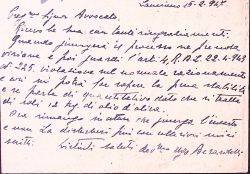 Lanciano 15-2-947
Preg.mo Signor Avvocato,
Ricevo la sua con tanti ringraziamenti.
Quando giungerà il processo ne prenda
visione e poi guardi l'art. 4 R.D.L. 22.4.943
n. 245. violazione sul normale razionamento
e così mi potrà far sapere la pena stabilita
e se parla di quantitativo dato che si tratta
di soli 12 kg. di olio d'oliva.
Ora rimango in attesa che giunga l'incarto
e non La disturbo più con altri miei
scritti. Distinti saluti dev.mo Ugo Berardelli